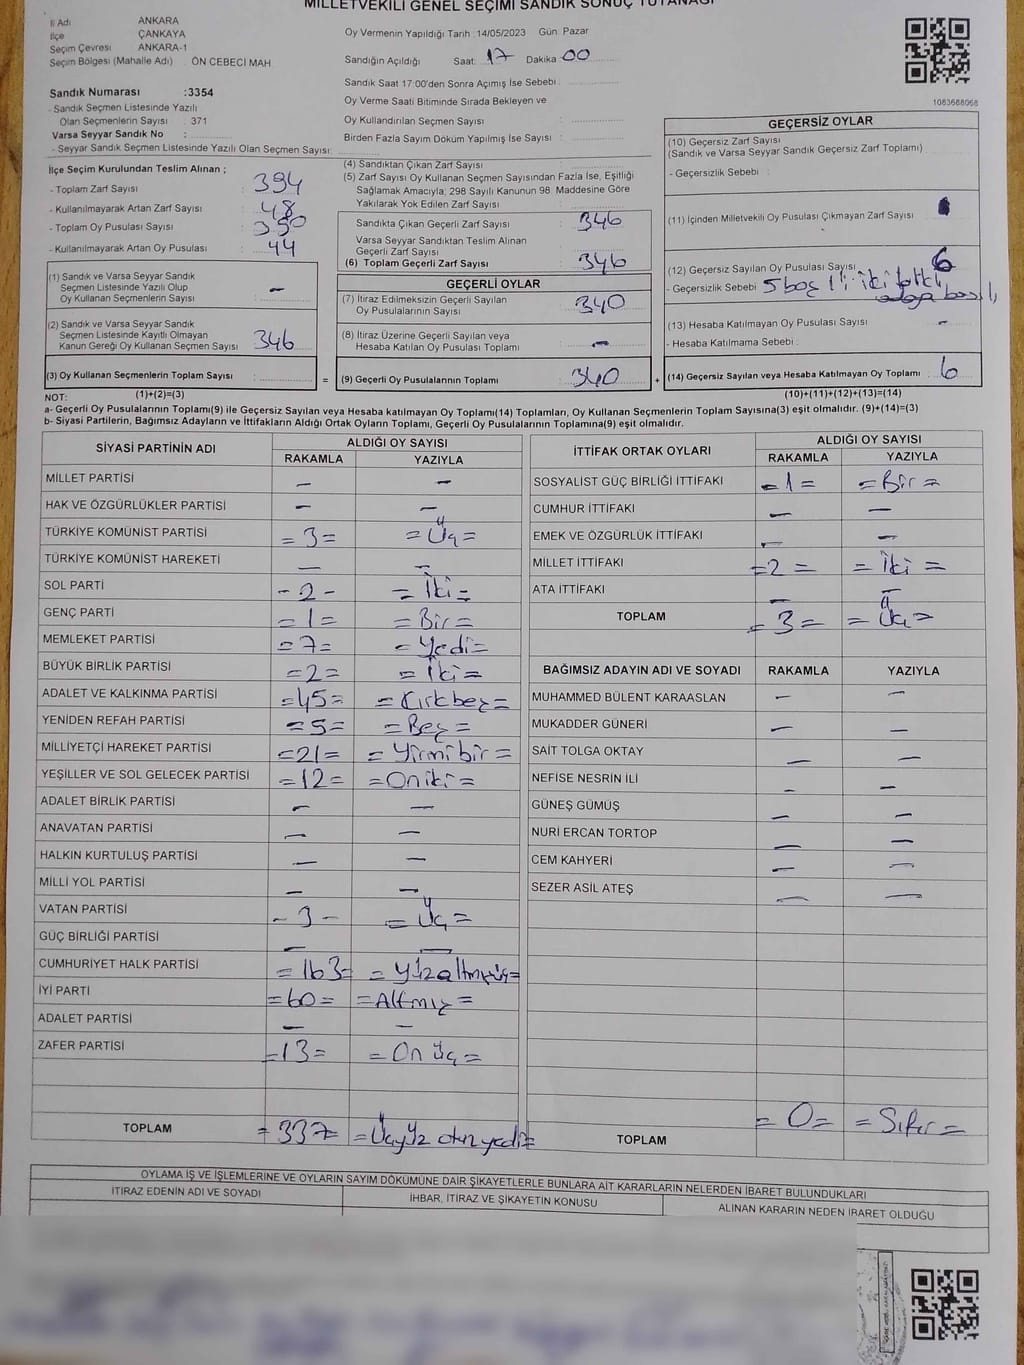 MİLLETVEKİLİ GENEL SEÇİMİ SANDIK SONUÇ TUTANAĞI
İl Adı ANKARA
İlçe ÇANKAYA
Seçim Çevresi ANKARA-1
Seçim Bölgesi (Mahalle Adı) : ÖN CEBECİ MAH
Oy Vermenin Yapıldığı Tarih : 14/05/2023 Gün: Pazar
Sandığın Açıldığı Saat: 17 Dakika 00
Sandık Saat 17:00'den Sonra Açımış İse Sebebi :
Oy Verme Saati Bitiminde Sırada Bekleyen ve
Oy Kullandırılan Seçmen Sayısı :
Birden Fazla Sayım Döküm Yapılmış İse Sayısı :
1083688068
Sandık Numarası :3354
- Sandık Seçmen Listesinde Yazılı
Olan Seçmenlerin Sayısı : 371
Varsa Seyyar Sandık No :
- Seyyar Sandık Seçmen Listesinde Yazılı Olan Seçmen Sayısı:
İlçe Seçim Kurulundan Teslim Alınan ;
- Toplam Zarf Sayısı : 394
- Kullanılmayarak Artan Zarf Sayısı : 48
- Toplam Oy Pusulası Sayısı :
- Kullanılmayarak Artan Oy Pusulası : 44
(1) Sandık ve Varsa Seyyar Sandık
Seçmen Listesinde Yazılı Olup
Oy Kullanan Seçmenlerin Sayısı : -
(2) Sandık ve Varsa Seyyar Sandık
Seçmen Listesinde Kayıtlı Olmayan
Kanun Gereği Oy Kullanan Seçmen Sayısı : 346
(3) Oy Kullanan Seçmenlerin Toplam Sayısı : =
(4) Sandıktan Çıkan Zarf Sayısı :
(5) Zarf Sayısı Oy Kullanan Seçmenden Fazla İse, Eşitliği
Sağlamak Amacıyla; 298 Sayılı Kanunun 98. Maddesine Göre
Yakılarak Yok Edilen Zarf Sayısı :
Sandıkta Çıkan Geçerli Zarf Sayısı : 346
Varsa Seyyar Sandıktan Teslim Alınan
Geçerli Zarf Sayısı :
(6) Toplam Geçerli Zarf Sayısı : 346
GEÇERLİ OYLAR
(7) İtiraz Edilmeksizin Geçerli Sayılan
Oy Pusulalarının Sayısı : 340
(8) İtiraz Üzerine Geçerli Sayılan veya
Hesaba Katılan Oy Pusulası Toplamı : -
(9) Geçerli Oy Pusulalarının Toplamı : 340 +
GEÇERSİZ OYLAR
(10) Geçersiz Zarf Sayısı
(Sandık ve Varsa Seyyar Sandık Geçersiz Zarf Toplamı)
- Geçersizlik Sebebi :
(11) İçinden Milletvekili Oy Pusulası Çıkmayan Zarf Sayısı
(12) Geçersiz Sayılan Oy Pusulası Sayısı 6
- Geçersizlik Sebebi 5 boş
(13) Hesaba Katılmayan Oy Pusulası Sayısı -
- Hesaba Katılmama Sebebi :
(14) Geçersiz Sayılan veya Hesaba Katılmayan Oy Toplamı 6
NOT: (1)+(2)=(3) (10)+(11)+(12)+(13)=(14)
a- Geçerli Oy Pusulalarının Toplamı(9) ile Geçersiz Sayılan veya Hesaba katılmayan Oy Toplamı(14) Toplamları, Oy Kullanan Seçmenlerin Toplam Sayısına(3) eşit olmalıdır. (9)+(14)=(3)
b- Siyasi Partilerin, Bağımsız Adayların ve İttifakların Aldığı Ortak Oyların Toplamı, Geçerli Oy Pusulalarının Toplamına(9) eşit olmalıdır.
SİYASİ PARTİNİN ADI ALDIĞI OY SAYISI
RAKAMLA YAZIYLA
MİLLET PARTİSİ - -
HAK VE ÖZGÜRLÜKLER PARTİSİ - -
TÜRKİYE KOMÜNİST PARTİSİ =3= =Üç=
TÜRKİYE KOMÜNİST HAREKETİ - -
SOL PARTİ -2- =İki=
GENÇ PARTİ =1= =Bir=
MEMLEKET PARTİSİ =7= =Yedi=
BÜYÜK BİRLİK PARTİSİ =2= =İki=
ADALET VE KALKINMA PARTİSİ =45= =Kırkbeş=
YENİDEN REFAH PARTİSİ =5= =Beş=
MİLLİYETÇİ HAREKET PARTİSİ =21= =Yirmibir=
YEŞİLLER VE SOL GELECEK PARTİSİ =12= =Oniki=
ADALET BİRLİK PARTİSİ - -
ANAVATAN PARTİSİ - -
HALKIN KURTULUŞ PARTİSİ - -
MİLLİ YOL PARTİSİ - -
VATAN PARTİSİ -3- =Üç=
GÜÇ BİRLİĞİ PARTİSİ - -
CUMHURİYET HALK PARTİSİ =163=
İYİ PARTİ =60= =Altmış=
ADALET PARTİSİ - -
ZAFER PARTİSİ =13= =On üç=
TOPLAM =337= =Üçyüz otuz yedi=
İTTİFAK ORTAK OYLARI ALDIĞI OY SAYISI
RAKAMLA YAZIYLA
SOSYALİST GÜÇ BİRLİĞİ İTTİFAKI =1= =Bir=
CUMHUR İTTİFAKI - -
EMEK VE ÖZGÜRLÜK İTTİFAKI - -
MİLLET İTTİFAKI =2= =İki=
ATA İTTİFAKI - -
TOPLAM =3= =Üç=
BAĞIMSIZ ADAYIN ADI VE SOYADI RAKAMLA YAZIYLA
MUHAMMED BÜLENT KARAASLAN - -
MUKADDER GÜNERİ - -
SAİT TOLGA OKTAY - -
NEFİSE NESRİN İLİ - -
GÜNEŞ GÜMÜŞ - -
NURİ ERCAN TORTOP - -
CEM KAHYERİ - -
SEZER ASİL ATEŞ - -
TOPLAM =0= =Sıfır=
OYLAMA İŞ VE İŞLEMLERİNE VE OYLARIN SAYIM DÖKÜMÜNE DAİR ŞİKAYETLERLE BUNLARA AİT KARARLARIN NELERDEN İBARET BULUNDUKLARI
İTİRAZ EDENİN ADI VE SOYADI İHBAR, İTİRAZ VE ŞİKAYETİN KONUSU ALINAN KARARIN NEDEN İBARET OLDUĞU